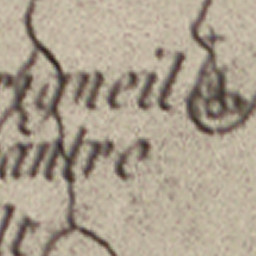 rigneil
antre
lt